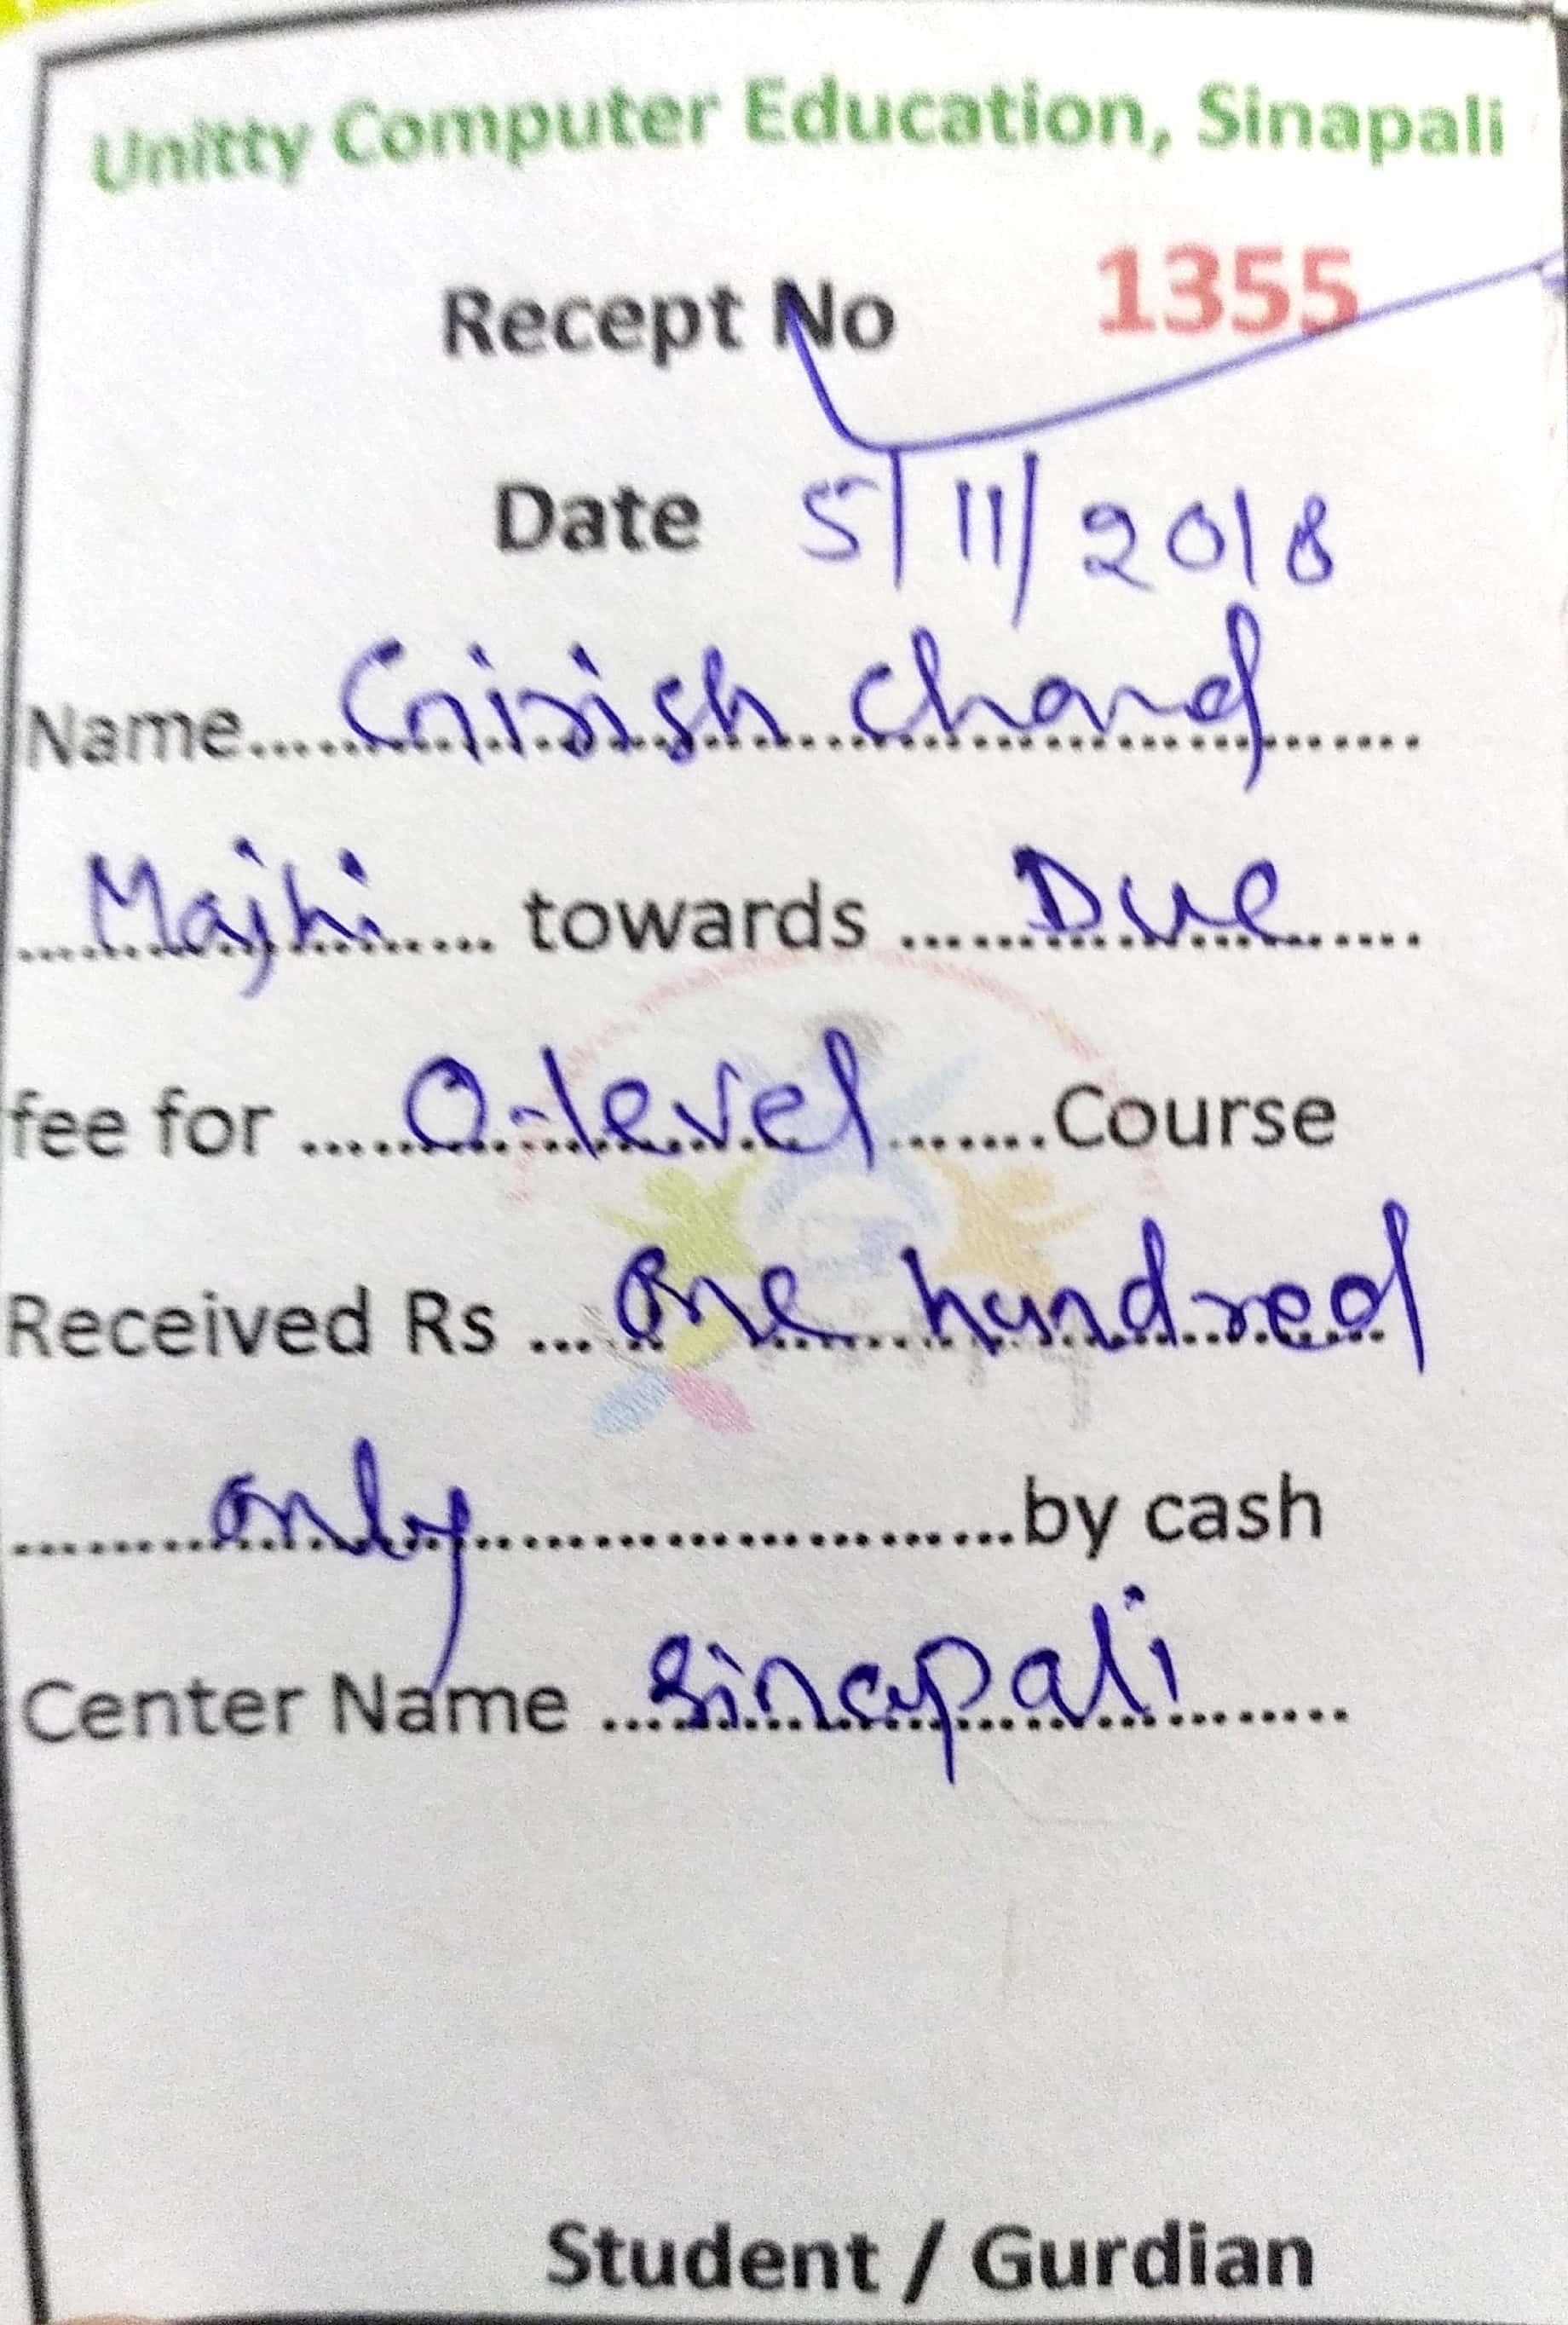 Unitty Computer Education, Sinapali
Recept No 1355
Date 5/11/2018
Name.....Girish Chand.....
.....Majhi..... towards .....Due.....
fee for .....O-level.....Course
Received Rs ...One hundred
.....only.....by cash
Center Name .....Sinapali.....
Student / Gurdian